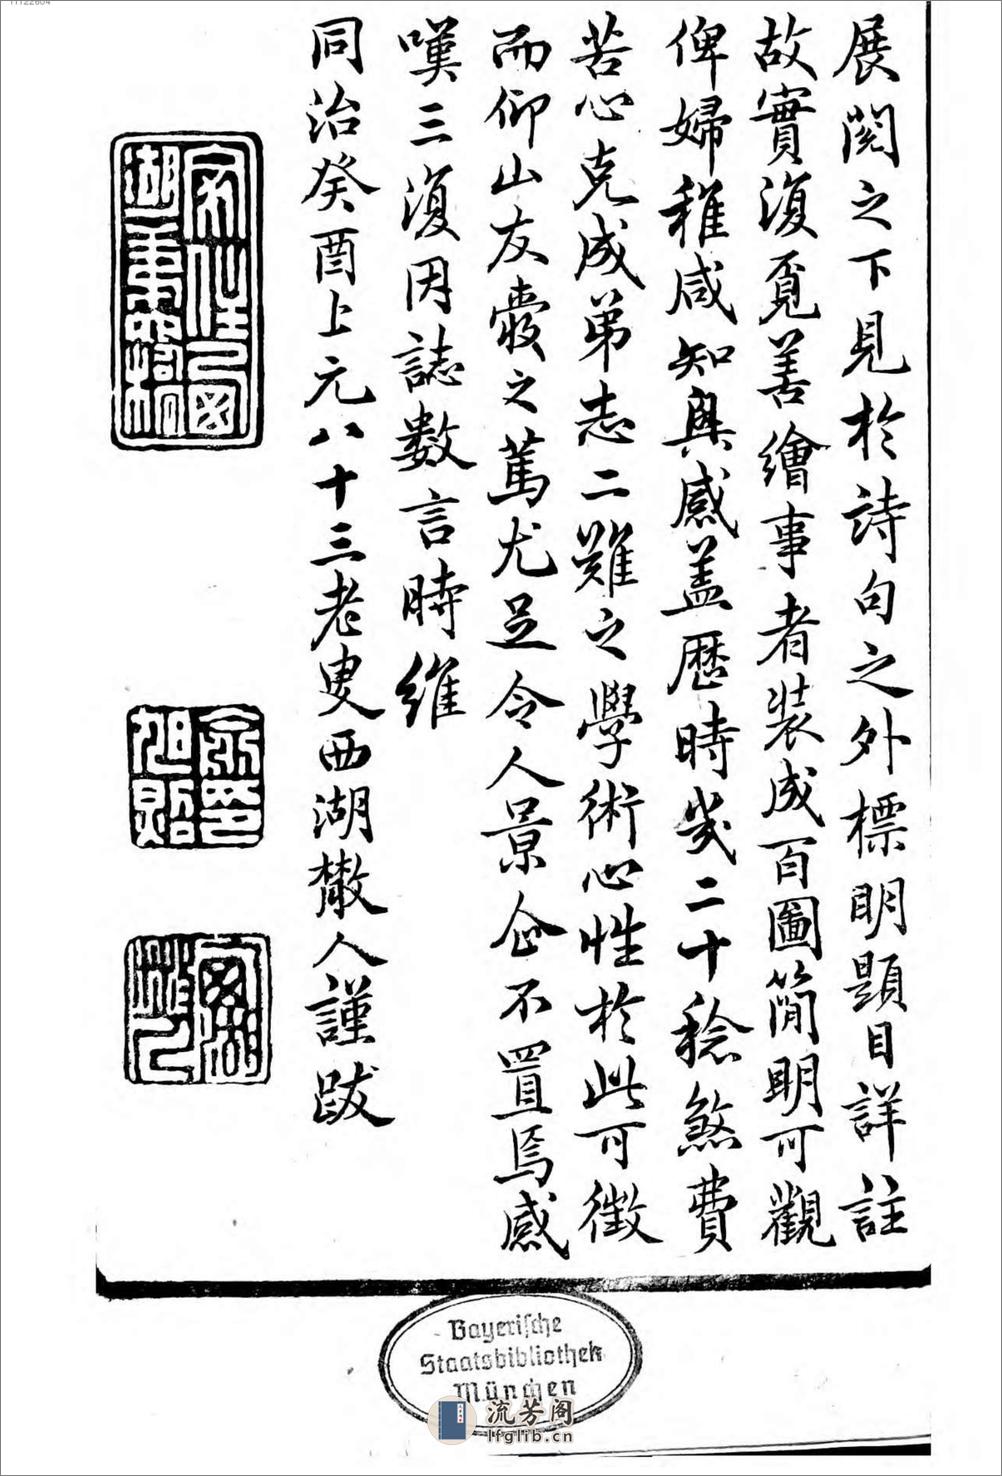 11122604
展閱之下見於詩句之外標明題目詳註
故實復覓善繪事者裝成百圖簡明可觀
俾婦稚咸知興感蓋歷時幾二十稔煞費
苦心克成弟志二難之學術心性於此可徵
而仰山友愛之篤尤足令人景企不置焉感
嘆三復因誌數言時維
同治癸酉上元八十三老叟西湖散人謹跋
家住西
湖
余印
旭
西湖
散人
Bayerische
Staatsbibliothek
München
流芳阁
lfglib.cn